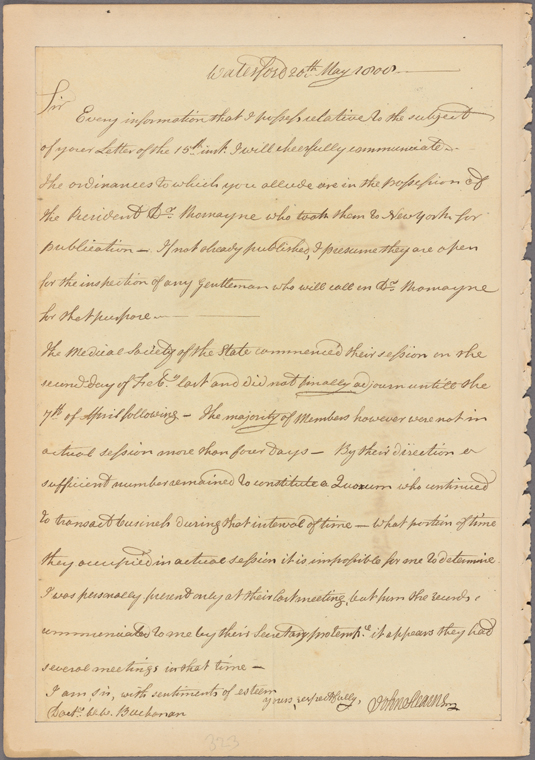 Waterford 20th May 1808
Sir
Every information that I possess relative to the subject
of your Letter of the 15th inst. I will cheerfully communicate.
The ordinances to which you allude are in the possession of
the President Dr. Romayne who took them to New York for
Publication — If not already published, I presume they are open
for the inspection of any Gentleman who will call on Dr. Romayne
for that purpose —
The Medical Society of the State commenced their session on the
second day of Feby. last and did not finally adjourn untill the
7th of April following — The majority of Members however were not in
actual session more than four days — By their direction a
sufficient number remained to constitute a Quorum who continued
to transact business during that interval of time — What portion of time
they occupied in actual session it is impossible for me to determine.
I was personally present only at their last meeting, but from the records
communicated to me by their Secretary protempe. it appears they had
several meetings in that time —
I am sir, with sentiments of esteem
yours, respectfully, John Stearns
Doctr. W. Buchanan
323